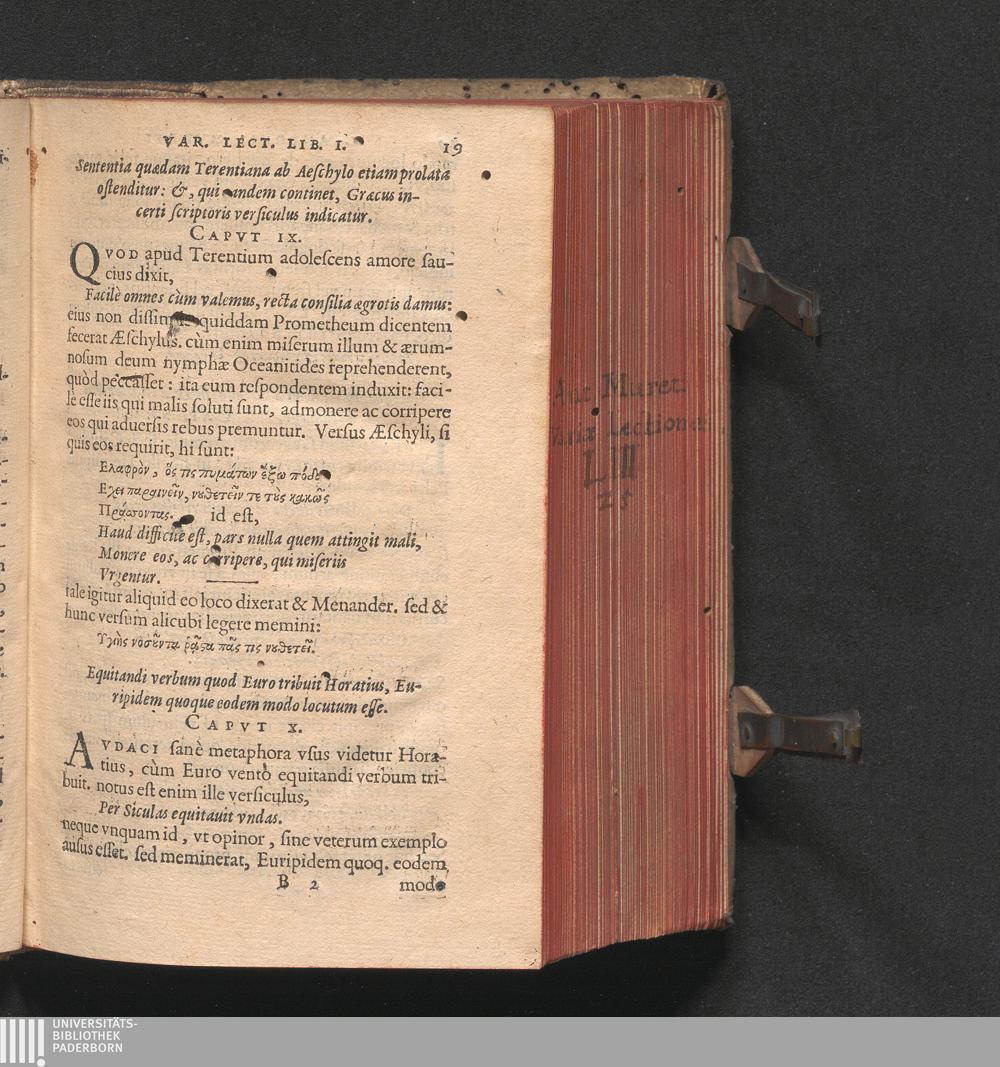 VAR. LECT. LIB. I. 19
Sententia quædam Terentiana ab Aeſchylo etiam prolata
oſtenditur: &, qui eandem continet, Græcus in-
certi ſcriptoris verſiculus indicatur.
CAPVT IX.
QVOD apud Terentium adoleſcens amore ſau-
cius dixit,
Facilè omnes cùm valemus, recta conſilia ægrotis damus:
eius non diſſimile quiddam Prometheum dicentem
fecerat Æſchylus. cùm enim miſerum illum & ærum-
noſum deum nymphæ Oceanitides reprehenderent,
quòd peccaſſet: ita eum reſpondentem induxit: faci-
lè eſſe iis qui malis ſoluti ſunt, admonere ac corripere
eos qui aduerſis rebus premuntur. Verſus Æſchyli, ſi
quis eos requirit, hi ſunt:
Ελαφρὸν, ὅς τις πυμάτων ἔξω πόδα
Εχει παραινεῖν, νουθετεῖν τε τοὺς κακῶς
Πράσσοντας. id eſt,
Haud difficile eſt, pars nulla quem attingit mali,
Monere eos, ac corripere, qui miſeriis
Vrgentur.
tale igitur aliquid eo loco dixerat & Menander. ſed &
hunc verſum alicubi legere memini:
Υγιὴς νοσοῦντα ῥᾷστα πᾶς τις νουθετεῖ.
Equitandi verbum quod Euro tribuit Horatius, Eu-
ripidem quoque eodem modo locutum eſſe.
CAPVT X.
AVDACI ſanè metaphora vſus videtur Hora-
tius, cùm Euro vento equitandi verbum tri-
buit. notus eſt enim ille verſiculus,
Per Siculas equitauit vndas.
neque vnquam id, vt opinor, ſine veterum exemplo
auſus eſſet. ſed meminerat, Euripidem quoq. eodem
B 2 modo
Ant Mureti
Variæ Lectiones
LIII
25
UNIVERSITÄTS-
BIBLIOTHEK
PADERBORN